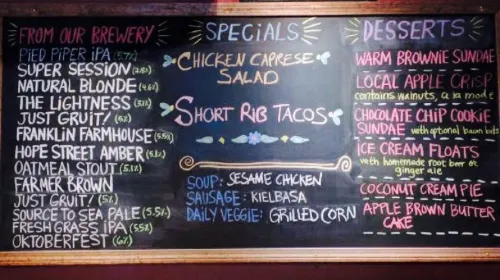 FROM OUR BREWERY
PIED PIPER IPA (5.7%)
SUPER SESSION (2.8%)
NATURAL BLONDE (4.6%)
THE LIGHTNESS
JUST GRUIT! (5%)
FRANKLIN FARMHOUSE (5.5%)
HOPE STREET AMBER (5.2%)
OATMEAL STOUT (5.1%)
FARMER BROWN
JUST GRUIT! (5%)
SOURCE TO SEA PALE (5.5%)
FRESH GRASS IPA (5.5%)
OKTOBERFEST (6%)
SPECIALS
CHICKEN CAPRESE
SALAD
SHORT RIB TACOS
SOUP: SESAME CHICKEN
SAUSAGE: KIELBASA
DAILY VEGGIE: GRILLED CORN
DESSERTS
WARM BROWNIE SUNDAE
LOCAL APPLE CRISP
contains walnuts, a la mode
CHOCOLATE CHIP COOKIE
SUNDAE with optional bacon bits
ICE CREAM FLOATS
with homemade root beer or
ginger ale
COCONUT CREAM PIE
APPLE BROWN BUTTER
CAKE